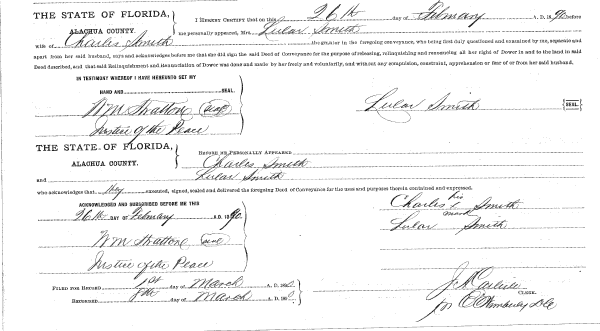 THE STATE OF FLORIDA,
ALACHUA COUNTY.
I HEREBY CERTIFY that on this 26th day of February A. D. 1890 before
me personally appeared, Mrs. Lular Smith
wife of Charles Smith the grantor in the foregoing conveyance, who being first duly questioned and examined by me, separate and
apart from her said husband, says and acknowledges before me that she did sign the said Deed of Conveyance for the purpose of releasing, relinquishing and renouncing all her right of Dower in and to the land in said
Deed described, and that said Relinquishment and Renunciation of Dower was done and made by her freely and voluntarily, and without any compulsion, constraint, apprehension or fear of or from her said husband.
IN TESTIMONY WHEREOF I HAVE HEREUNTO SET MY
HAND AND SEAL.
Wm Strattone Seal
Justice of the Peace
Lular Smith SEAL.
THE STATE OF FLORIDA,
ALACHUA COUNTY.
BEFORE ME PERSONALLY APPEARED
Charles Smith
and Lular Smith
who acknowledges that they executed, signed, sealed and delivered the foregoing Deed of Conveyance for the uses and purposes therein contained and expressed.
ACKNOWLEDGED AND SUBSCRIBED BEFORE ME THIS
26th DAY OF February A.D. 1890
Wm Strattone Seal
Justice of the Peace
Charles his mark Smith
Lular Smith
FILED FOR RECORD 1st day of March A. D. 1890
RECORDED 8th day of March A. D. 1890
J A Carlisle CLERK.